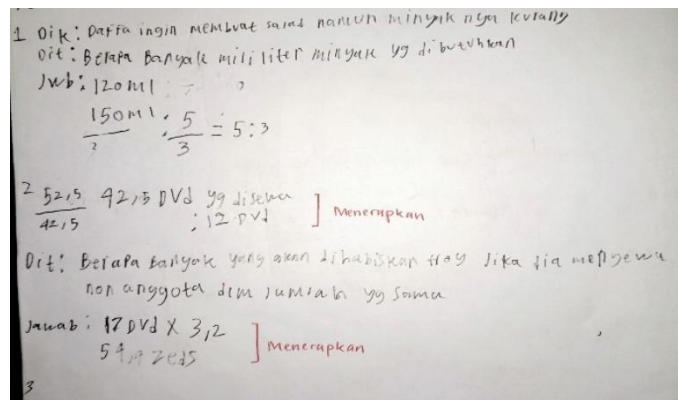 1 Dik: Daffa ingin membuat salad namun minyak nya kurang
Dit: Berapa Banyak mili liter minyak yg dibutuhkan
Jwb: 120 ml
150 ml : 5/3 = 5:3
2
2 52,5/42,5 42,5 DVD yg disewa
: 12 DVD
] Menerapkan
Dit: Berapa Banyak yang akan dihabiskan troy Jika dia menyewa
non anggota dlm Jumlah yg sama
Jawab: 17 DVD X 3,2
54,4 zeds
] Menerapkan
3